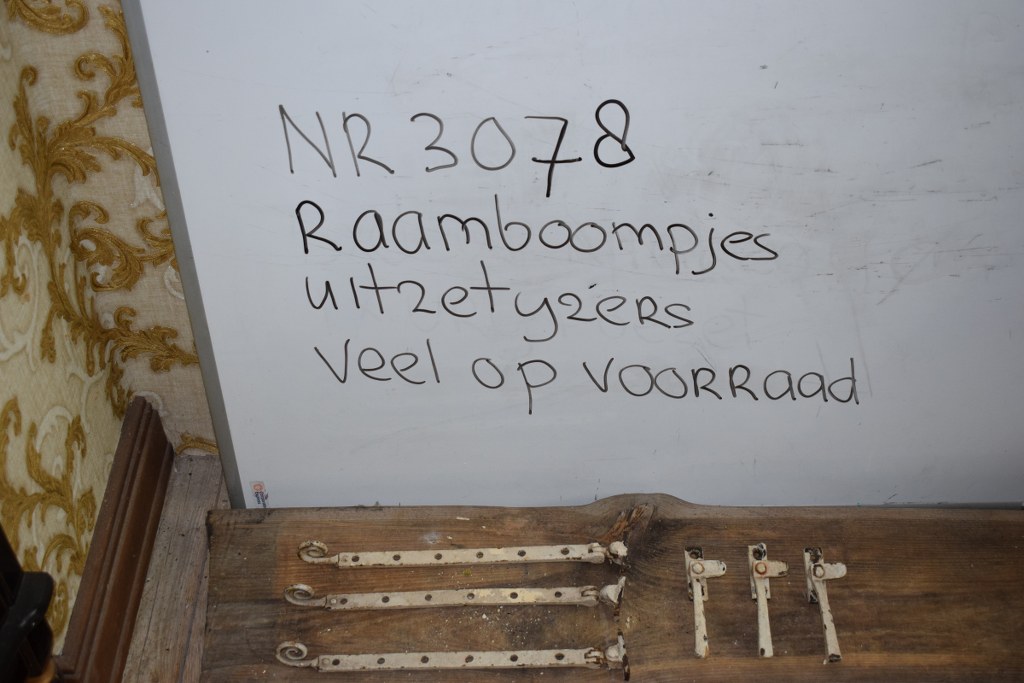 NR 3078
Raamboompjes
uitzetyzers
veel op voorraad